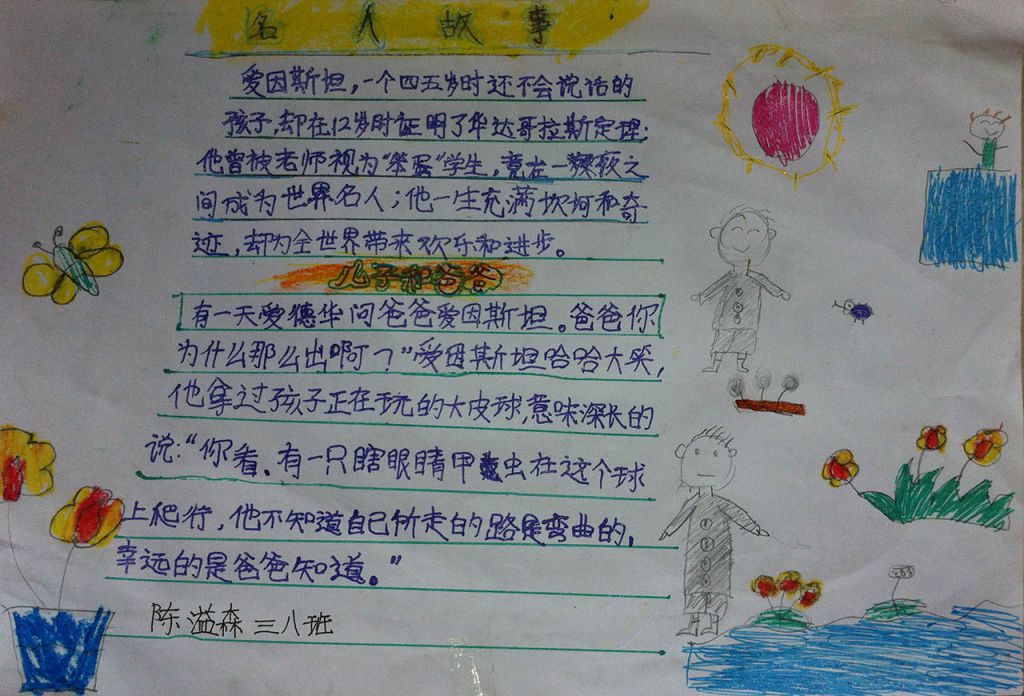 名人故事
爱因斯坦，一个四五岁时还不会说话的
孩子，却在12岁时证明了华达哥拉斯定理；
他曾被老师视为“笨蛋”学生，竟在一颗夜之
间成为世界名人；他一生充满坎坷和奇
迹，却为全世界带来欢乐和进步。
儿子和爸爸
有一天爱德华问爸爸爱因斯坦。爸爸你
为什么那么出啊？”爱因斯坦哈哈大笑，
他拿过孩子正在玩的大皮球，意味深长的
说：“你看、有一只瞎眼睛甲虫在这个球
上爬行，他不知道自己所走的路是弯曲的，
幸运的是爸爸知道。”
陈溢森三八班